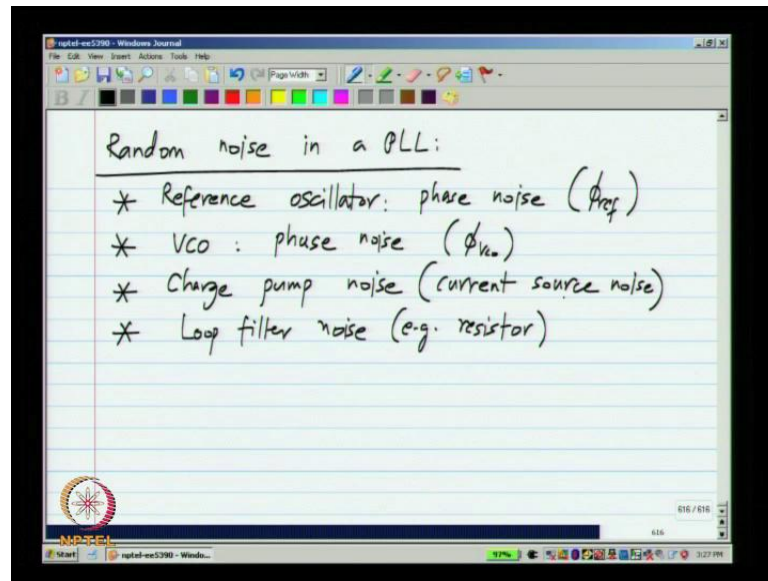 nptel-ee5390 - Windows Journal
File Edit View Insert Actions Tools Help
Page Width
B I
Random noise in a PLL:
* Reference oscillator: phase noise (ϕref)
* VCO : phase noise (ϕvco)
* Charge pump noise (current source noise)
* Loop filter noise (e.g. resistor)
616 / 616
616
NPTEL
Start
nptel-ee5390 - Windo...
97%
3:27 PM